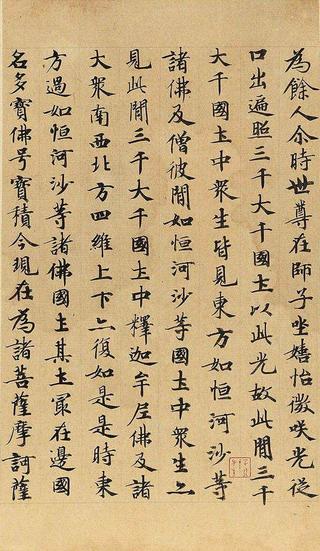 為餘人尒時世尊在師子坐嬉怡微咲光從
口出遍照三千大千國土以此光故此閒三千
大千國土中眾生皆見東方如恒河沙等
諸佛及僧彼閒如恒河沙等國土中眾生亦
見此閒三千大千國土中釋迦牟尼佛及諸
大眾南西北方四維上下亦復如是是時東
方過如恒河沙等諸佛國土其土冣在邊國
名多寶佛号寶積今現在為諸菩薩摩訶薩